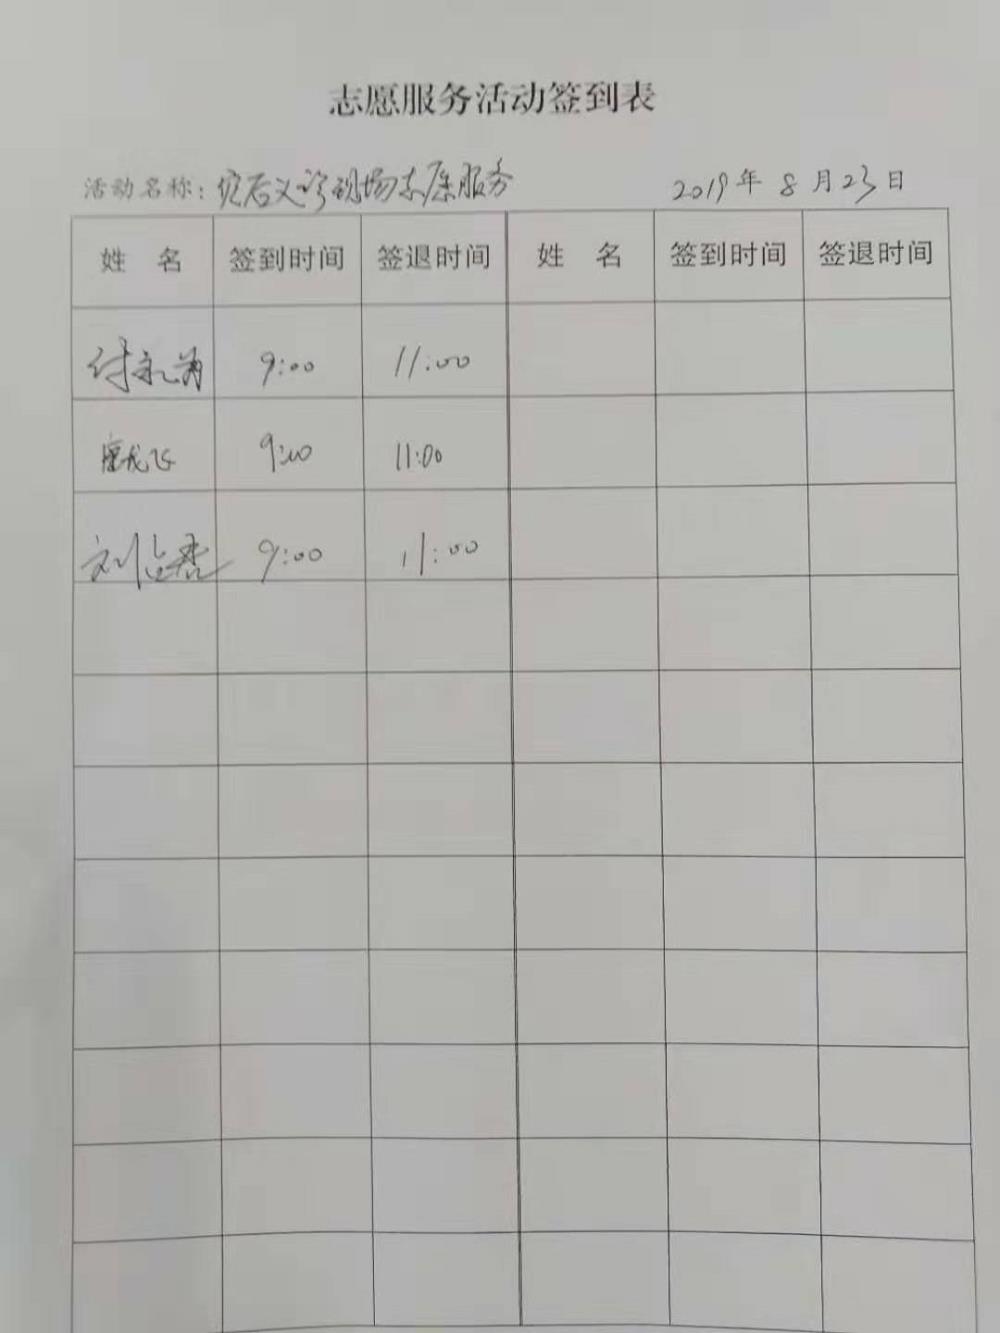 志愿服务活动签到表
活动名称：灾后义诊现场志愿服务 2019年8月23日
姓 名 签到时间 签退时间 姓 名 签到时间 签退时间
9:00 11:00
龙飞 9:00 11:00
刘 9:00 11:00